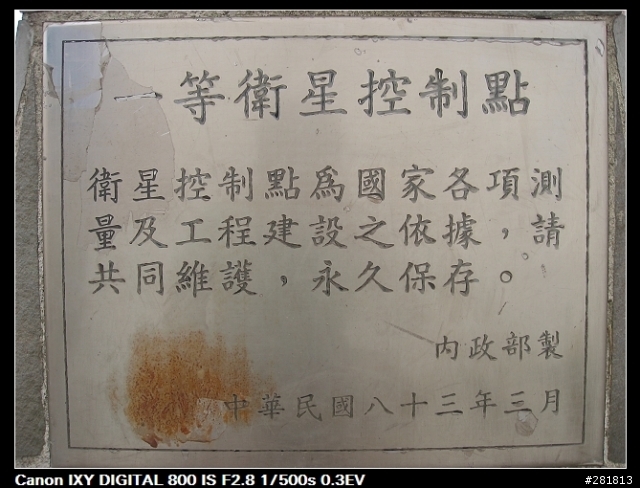 一等衛星控制點
衛星控制點為國家各項測
量及工程建設之依據，請
共同維護，永久保存。
內政部製
中華民國八十三年三月
Canon IXY DIGITAL 800 IS F2.8 1/500s 0.3EV
#281813